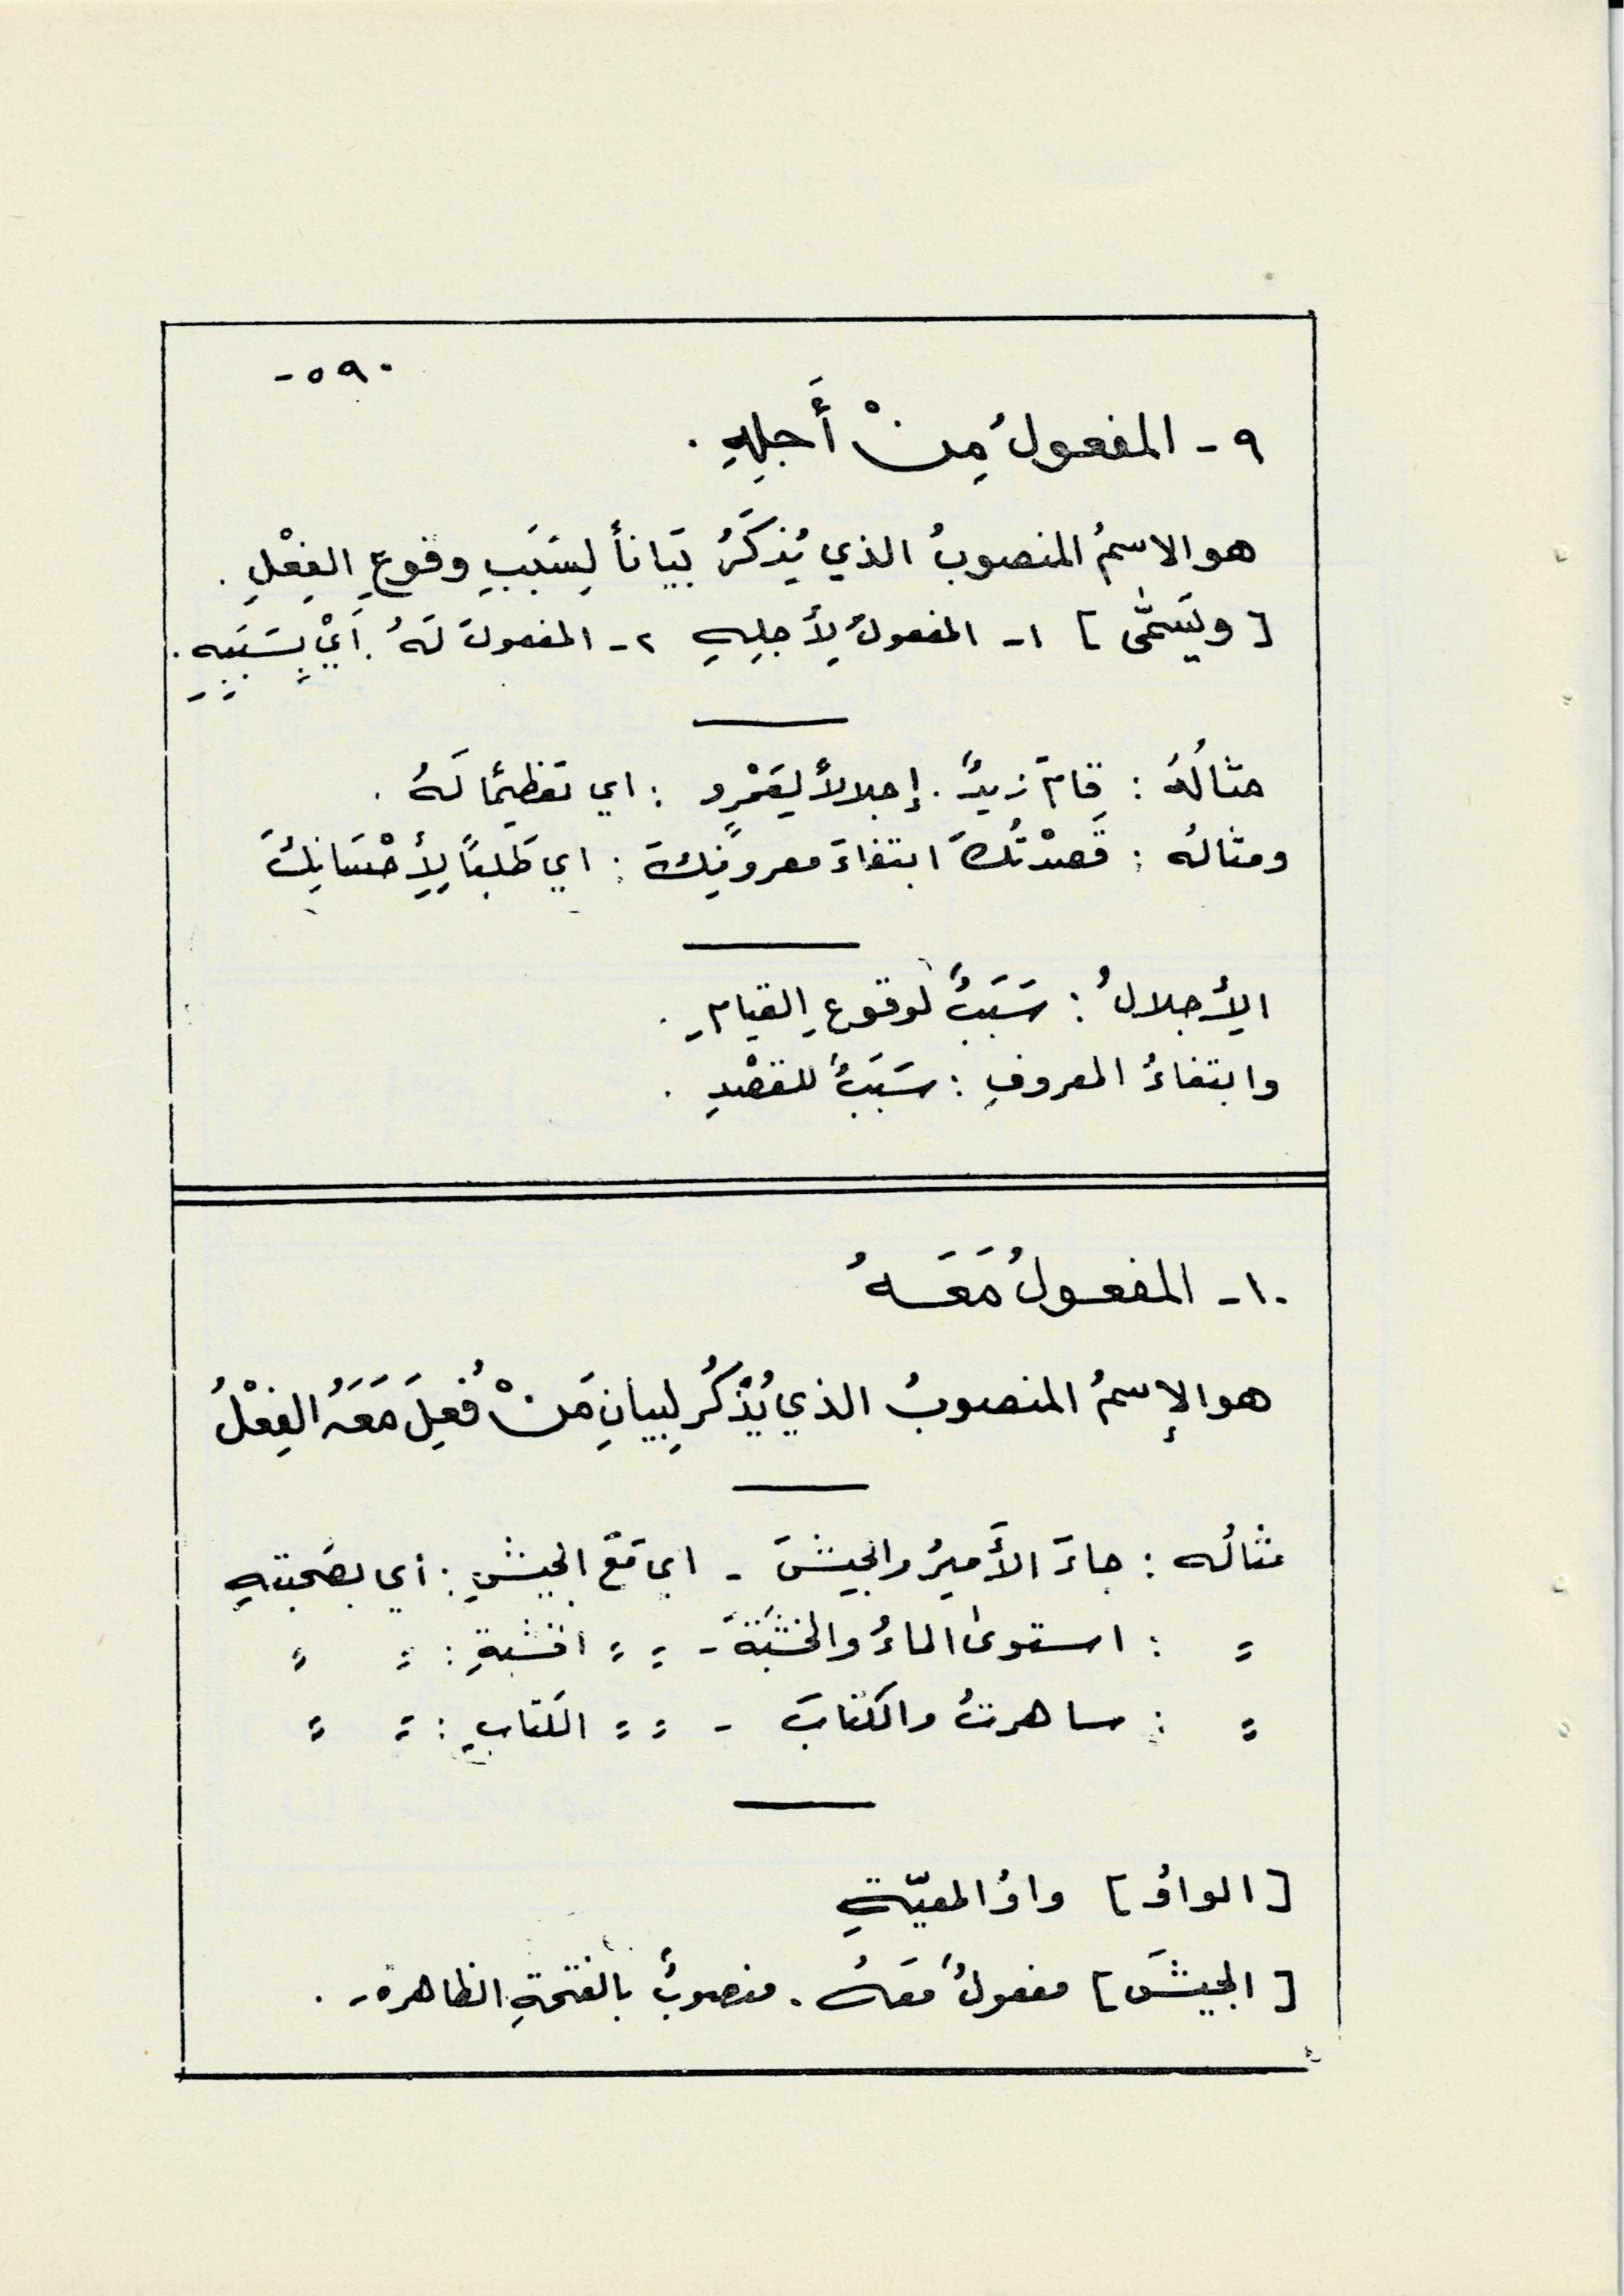 -٥٩٠
٩ - المفعولُ مِنْ أَجلِهِ .
هو الاسمُ المنصوبُ الذي يُذكَرُ بَيَاناً لِسَبَبِ وقوعِ الفِعْلِ .
[ ويُسَمَّى ] ١- المفعولُ لِأَجلِهِ ٢- المفعولُ لَهُ . أَيْ بِسَبَبِهِ .
مثالُهُ : قامَ زيدٌ . إجلالاً لِعَمْرٍو : اي تعظيمًا لَهُ .
ومثالهُ : قَصدْتُكَ ابتغاءَ معروفِكَ : اي طَلَبًا لِإِحْسَانِكَ
الإِجلالُ : سَبَبٌ لوقوعِ القيامِ .
وابتغاءُ المعروفِ : سَبَبٌ للقصْدِ .
١٠- المفعولُ مَعَهُ
هو الإِسمُ المنصوبُ الذي يُذْكَرُ لِبيانِ مَنْ فُعِلَ مَعَهُ الفِعْلُ
مثالُه : جاءَ الأَميرُ والجيشَ - اي مَعَ الجيشِ : أي بصُحبتِهِ
= : استوىٰ الماءُ والخَشَبَةَ - = = الخشبةِ : = =
= : ساهرتُ والكتابَ - = = الكتابِ : = =
[ الواوُ ] واوُ المعيّةِ
[ الجيشَ ] مفعولٌ مَعَهُ . منصوبٌ بالفتحةِ الظاهرةِ .